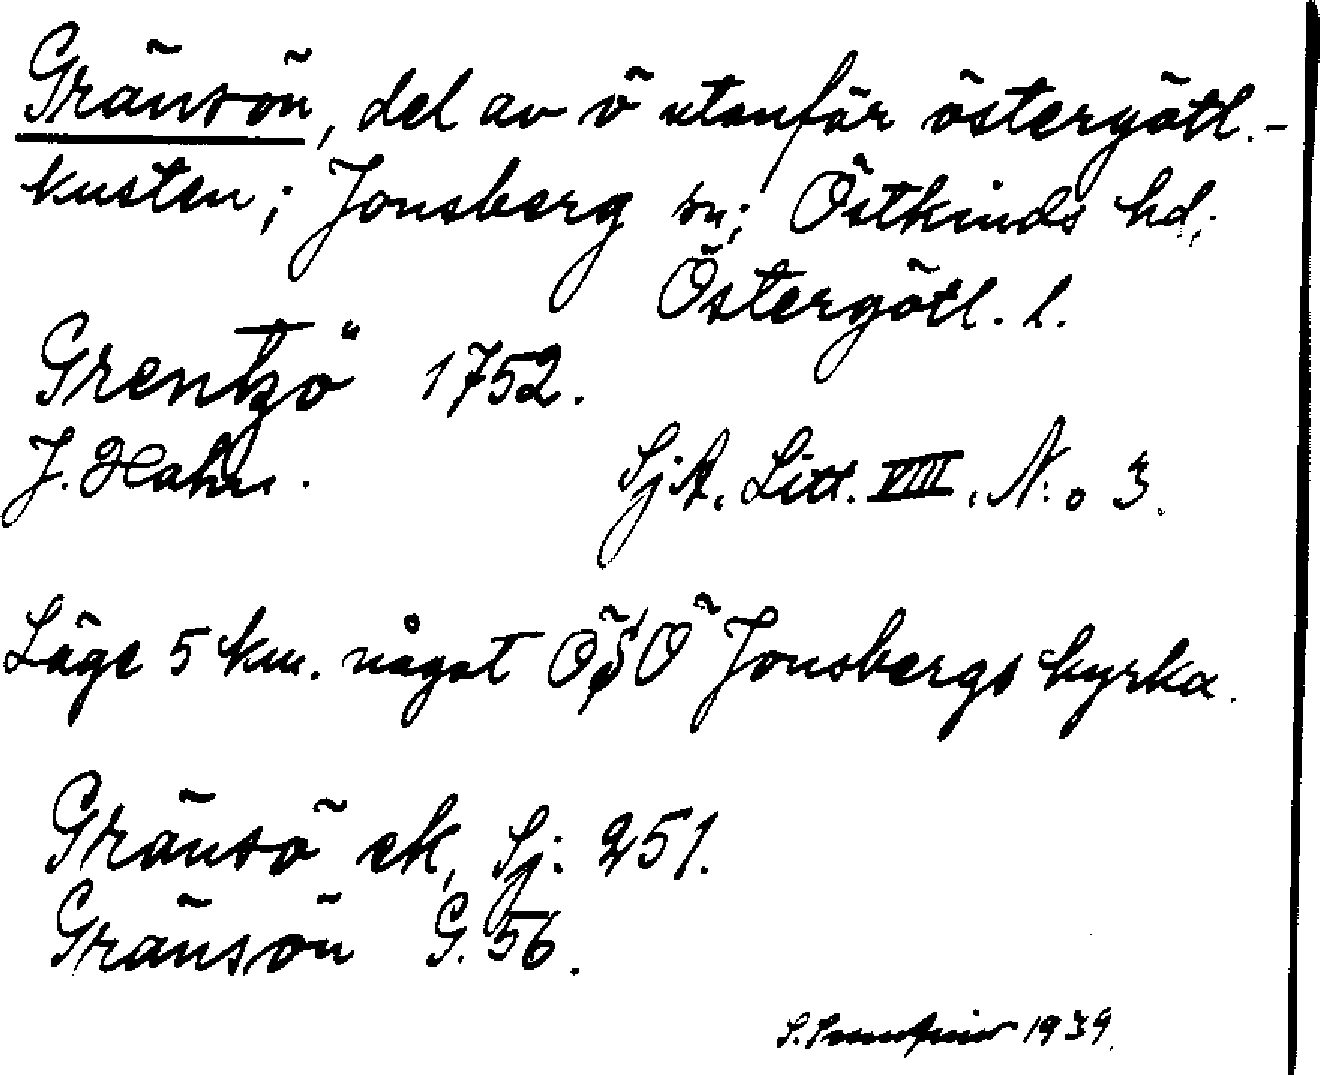 Gränsön, del av ö utanför östergötl.-
kusten; Jonsberg sn; Östkinds hd;
Östergötl. l.
Grentzö 1752.
J. Hahn. SjA. Litt. VIII. N:o 3.
Läge 5 km. något ÖSÖ Jonsbergs kyrka.
Gränsö ek, Sj: 251.
Gränsön G. 56.
1939.